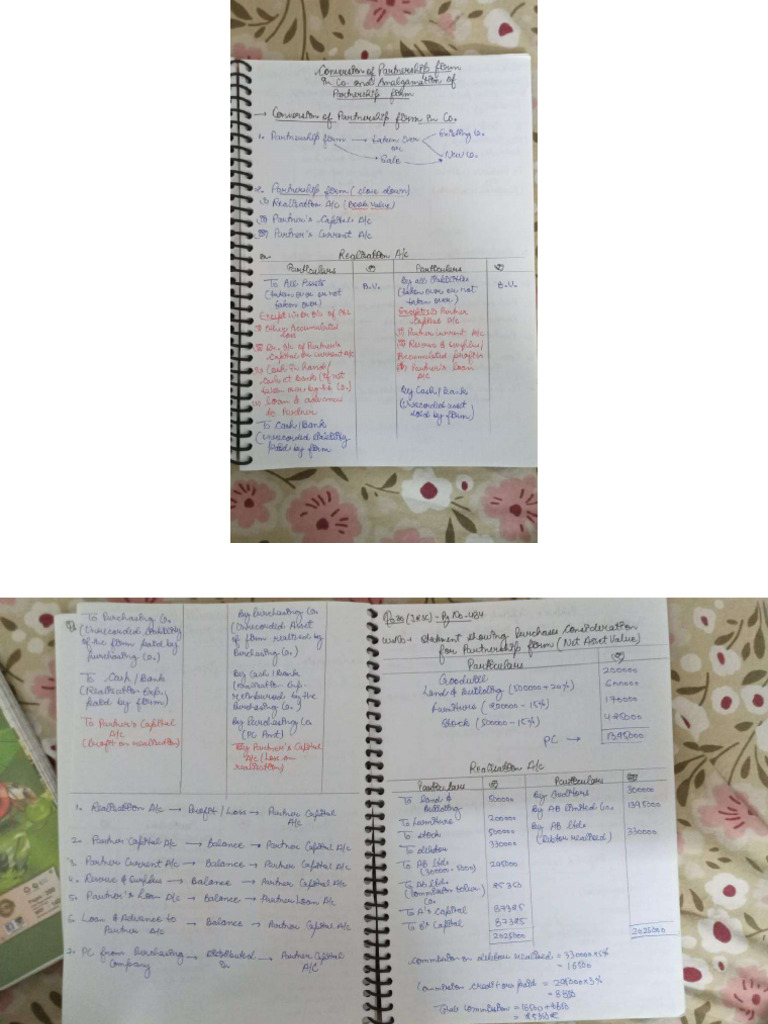 Conversion of Partnership firm
in Co. and Amalgamation of
Partnership firm
→ Conversion of Partnership firm in Co.
1. Partnership firm → taken over
or
Sale
Existing Co.
New Co.
2. Partnership firm (close down)
(i) Realisation A/c (Book Value)
(ii) Partner's Capital A/c
(iii) Partner's Current A/c
Realisation A/c
Particulars
To All Assets
(taken over or not
taken over)
(i) Other Accumulated
loss
Capital or current A/c
Cash in hand/
(v) Loan & advance
to Partner
To Cash/Bank
(Unrecorded liability
paid by firm
B.V.
Particulars
By all liabilities
(taken over or not
taken over)
Capital A/c
(ii) Partner Current A/c
(iii) Reserve & Surplus/
Accumulated profits
(iv) Partner's Loan
A/c
By Cash/Bank
(Unrecorded asset
sold by firm)
B.V.
To Purchasing Co.
(Unrecorded liabilities
of the firm paid by
purchasing Co.)
To Cash/Bank
(Realisation Exp.
paid by firm)
To Partner's Capital
A/c
(Profit on realisation)
By Purchasing Co.
(Unrecorded Asset
of firm realised by
Purchasing Co.)
By Cash/Bank
(Realisation Exp.
reimbursed by the
Purchasing Co.)
By Purchasing Co.
(PC Amt)
By Partner's Capital
A/c (Loss on
realisation)
1. Realisation A/c → Profit/Loss → Partner Capital
A/c
2. Partner Capital A/c → Balance → Partner Capital A/c
3. Partner Current A/c → Balance → Partner Capital A/c
4. Reserve & Surplus → Balance → Partner Capital A/c
5. Partner's Loan A/c → Balance → Partner Loan A/c
6. Loan & Advance to
Partner A/c → Balance → Partner Capital A/c
7. PC from Purchasing
Company → Distributed
in → Partner Capital
A/C
W.No-1 Statement showing Purchase Consideration
for Partnership firm (Net Asset Value)
Particulars
Goodwill 200000
Land & Building (500000+20%) 600000
Furniture (200000-15%) 170000
Stock (500000-15%) 425000
PC → 1395000
Realisation A/c
Particulars
To Land &
Building 500000
To Furniture 200000
To Stock 500000
To debtors 330000
To AB Ltd.
(300000-5000) 295000
To AB Ltd.
To A's Capital 87325
To B's Capital 87325
2025000
Particulars
By Creditors 300000
By AB Limited Co. 1395000
By AB Ltd.
(Debtor realised) 330000
2025000
Commission on debtors realised = 330000×5%
= 16500
Commission creditors paid = 295000×3%
= 8850